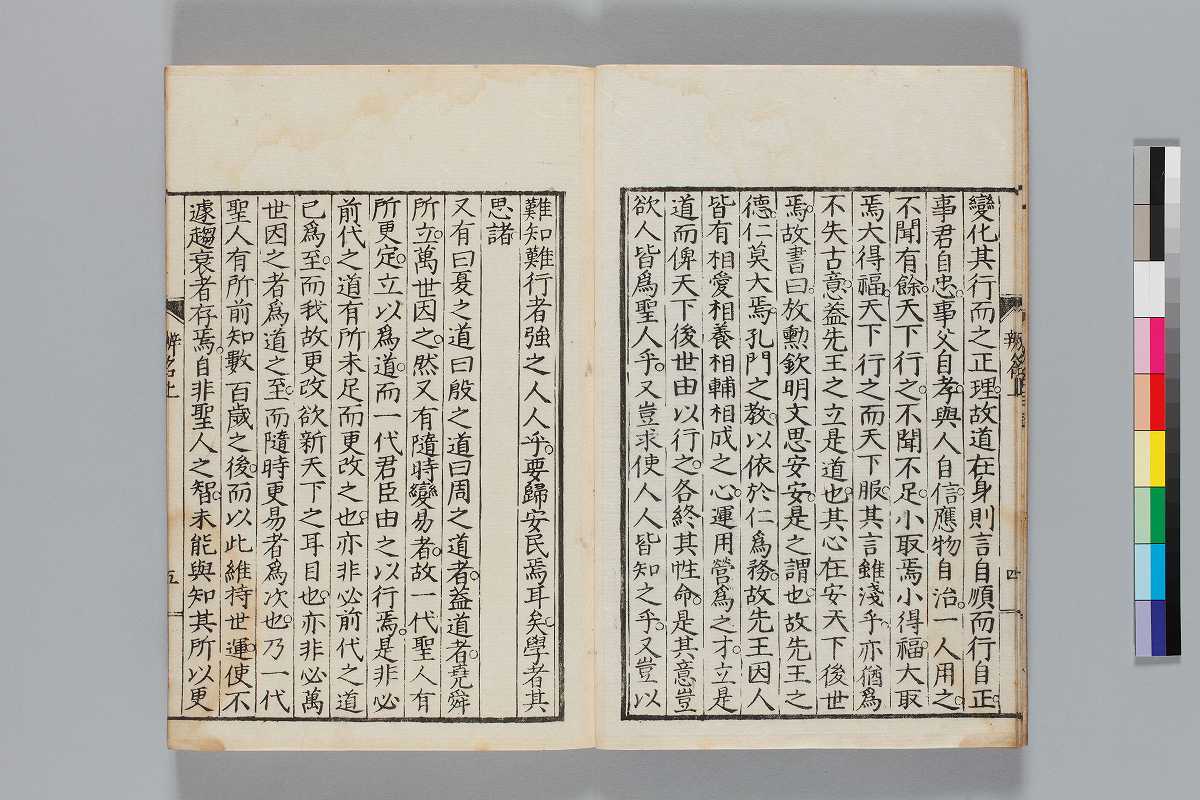 變化其行而之正理。故道在身則言自順而行自正。
事君自忠。事父自孝。與人自信。應物自治。一人用之。
不聞有餘。天下行之。不聞不足。小取焉小得福。大取
焉大得福。天下行之而天下服。其言雖淺乎。亦猶爲
不失古意。蓋先王之立是道也。其心在安天下後世
焉。故書曰。放勲欽明文思安安。是之謂也。故先王之
德。仁莫大焉。孔門之教。以依於仁爲務。故先王因人
皆有相愛相養相輔相成之心。運用營爲之才。立是
道而俾天下後世由以行之。各終其性命。是其意豈
欲人皆爲聖人乎。又豈求使人人皆知之乎。又豈以
辨名上
四
難知難行者強之人人乎。要歸安民焉耳矣。學者其
思諸
又有曰夏之道曰殷之道曰周之道者。蓋道者。堯舜
所立。萬世因之。然又有隨時變易者。故一代聖人有
所更定。立以爲道。而一代君臣由之以行焉。是非必
前代之道有所未足而更改之也。亦非必前代之道
已爲至。而我故更改欲新天下之耳目也。亦非必萬
世因之者爲道之至。而隨時更易者爲次也。乃一代
聖人有所前知數百歲之後。而以此維持世運。使不
遽趨衰者存焉。自非聖人之智。未能與知其所以更
辨名上
五